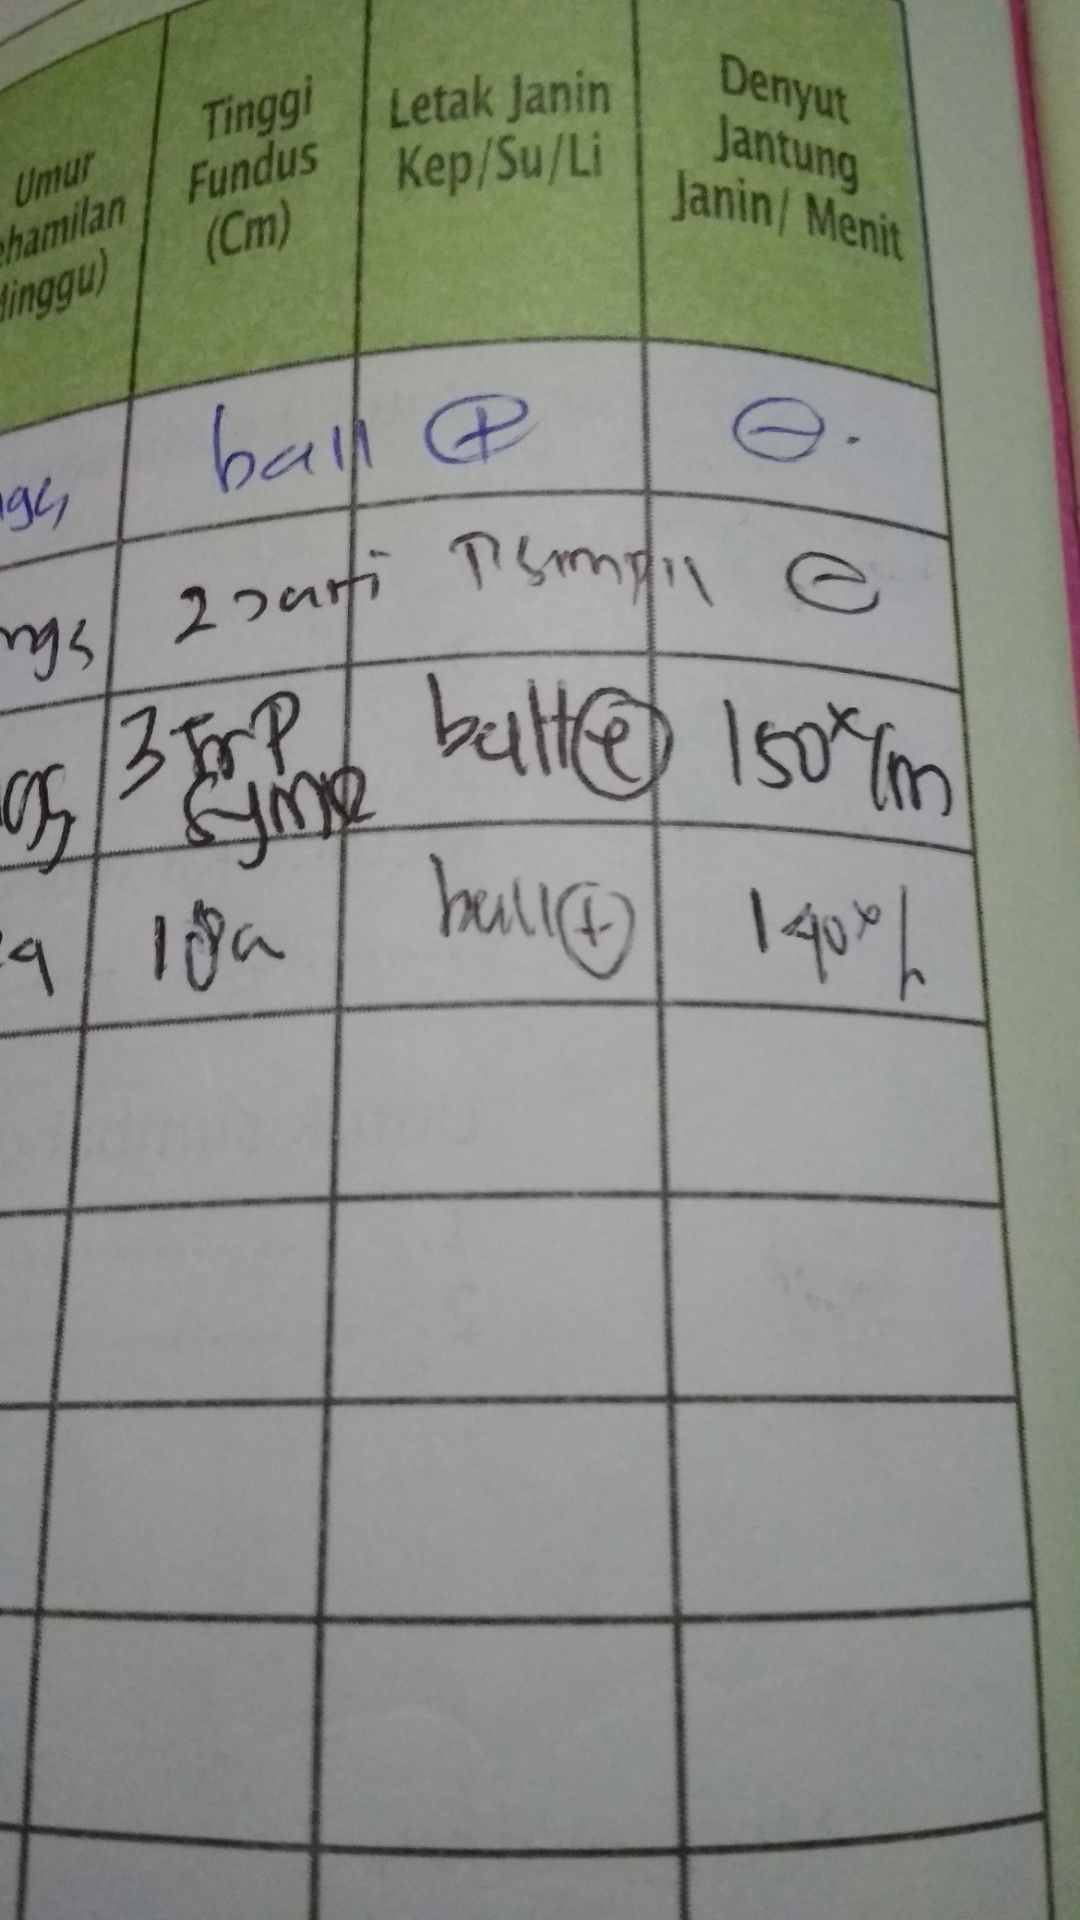 Umur
ehamilan
Minggu)
Tinggi
Fundus
(Cm)
Letak Janin
Kep/Su/Li
Denyut
Jantung
Janin/ Menit
ball ⊕ ⊖.
mgs 2 Jari ⊖
3 Jr P ball ⊕ 150x/m
18 ball ⊕ 140x/